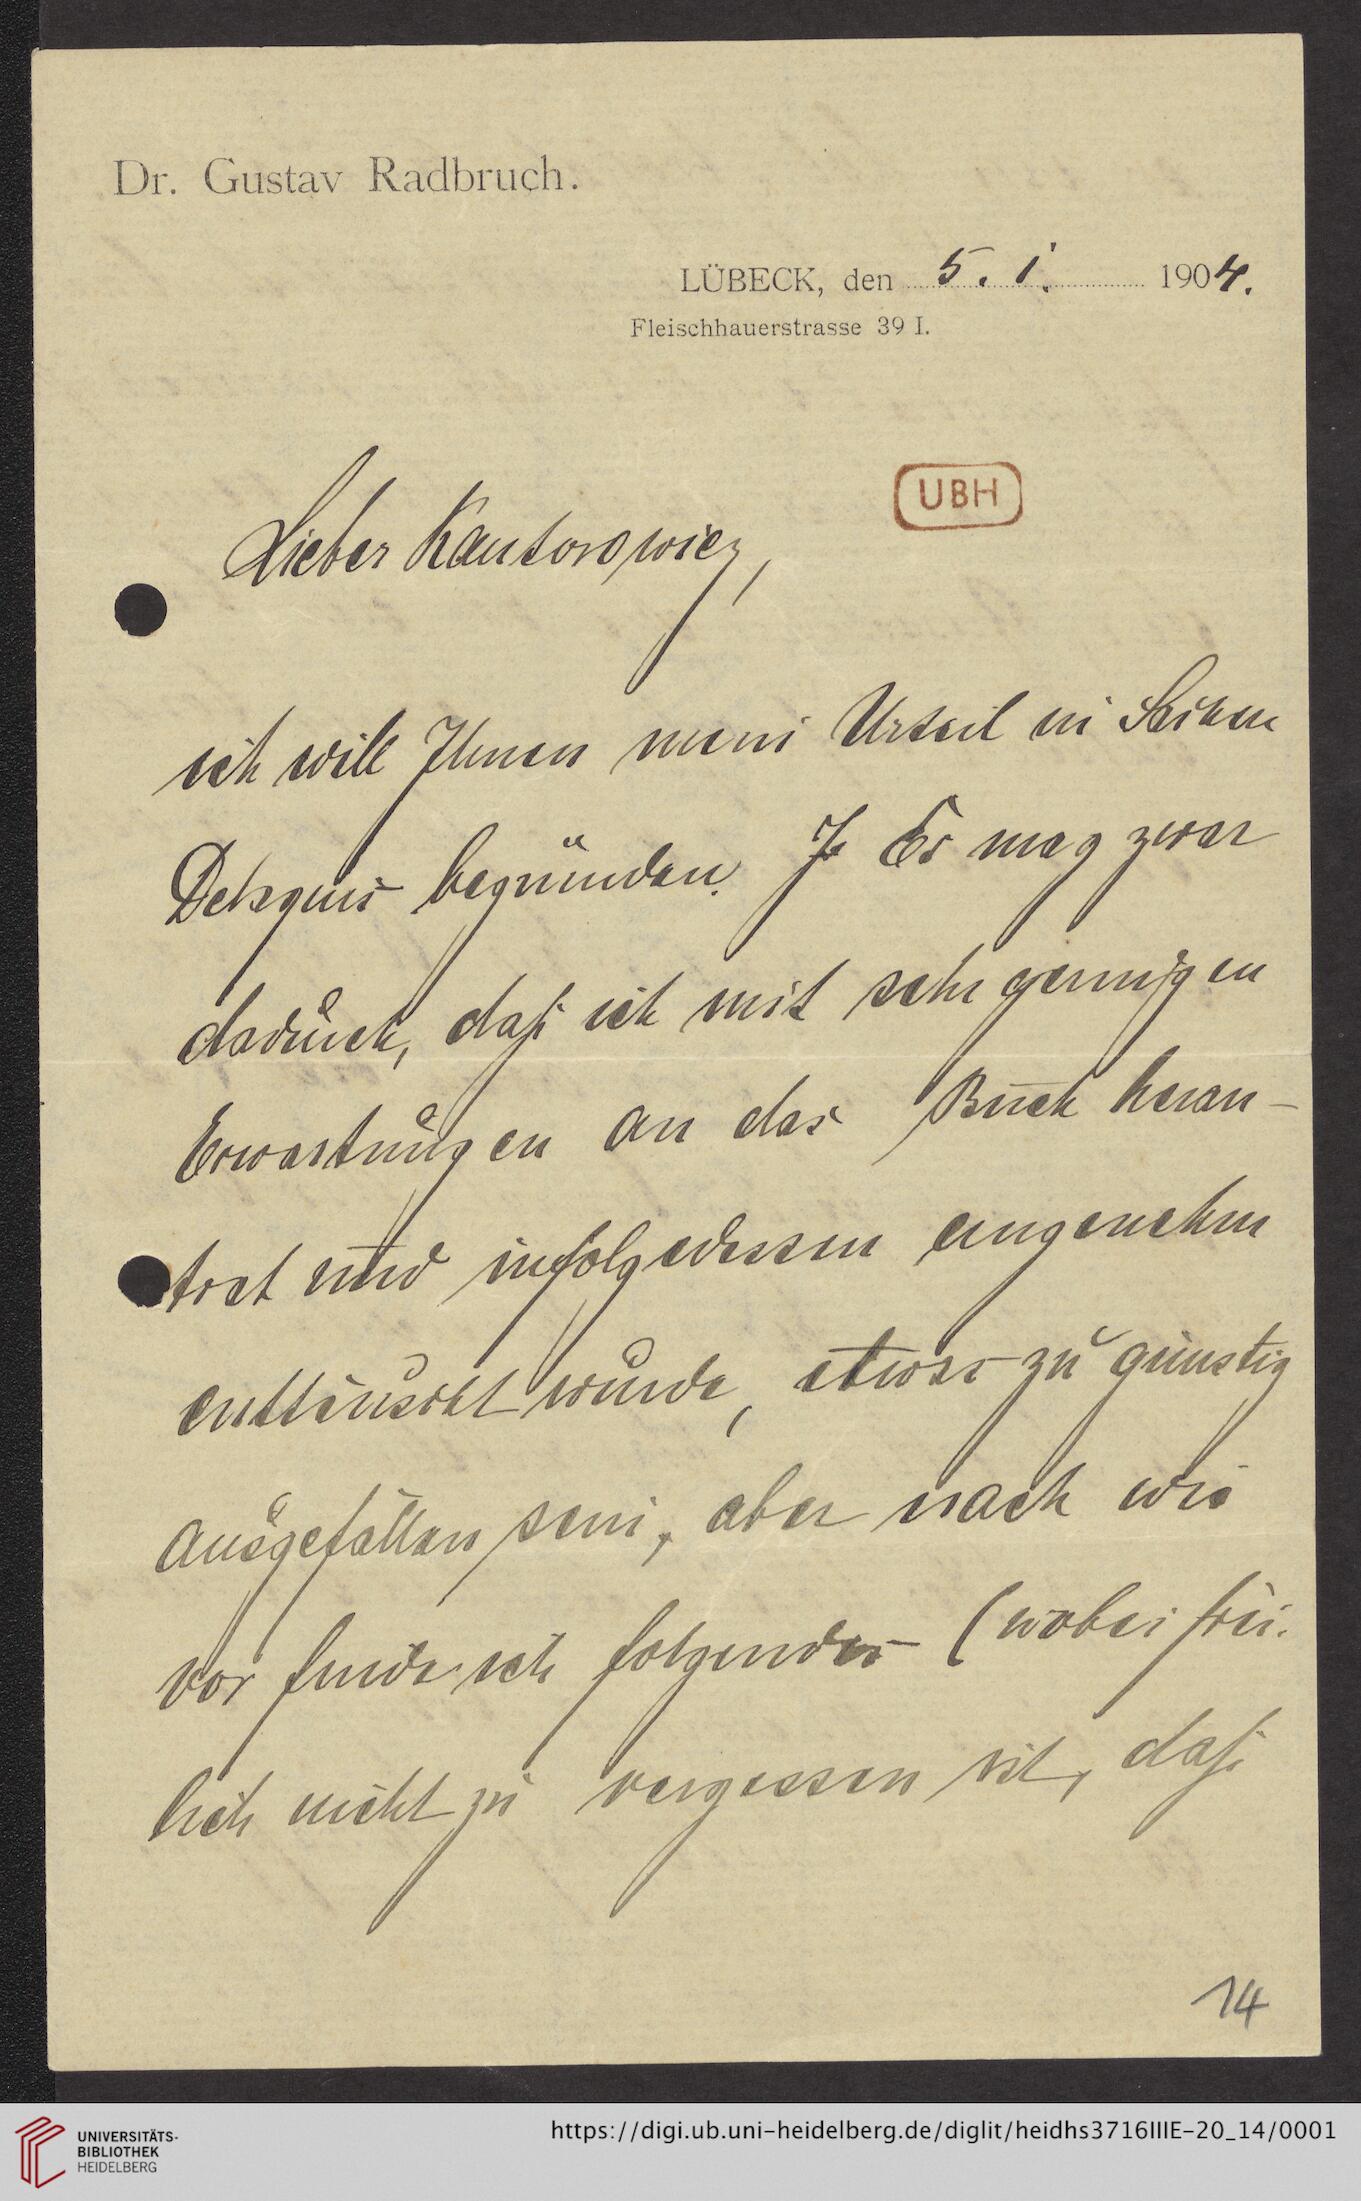 Dr. Gustav Radbruch.
LÜBECK, den 5. I. 1904.
Fleischhauerstrasse 39 I.
UBH
Lieber Kantorowicz,
ich will Ihnen mein Urteil in Sachen
Delaquis begründen. Es mag zwar
dadurch, daß ich mit sehr geringen
Erwartungen an das Buch heran-
trat und infolgedessen angenehm
enttäuscht wurde, etwas zu günstig
ausgefallen sein, aber nach wie
vor finde ich folgendes (wobei frei-
lich nicht zu vergessen ist, daß
14
UNIVERSITÄTS-
BIBLIOTHEK
HEIDELBERG
https://digi.ub.uni-heidelberg.de/diglit/heidhs3716IIIE-20_14/0001